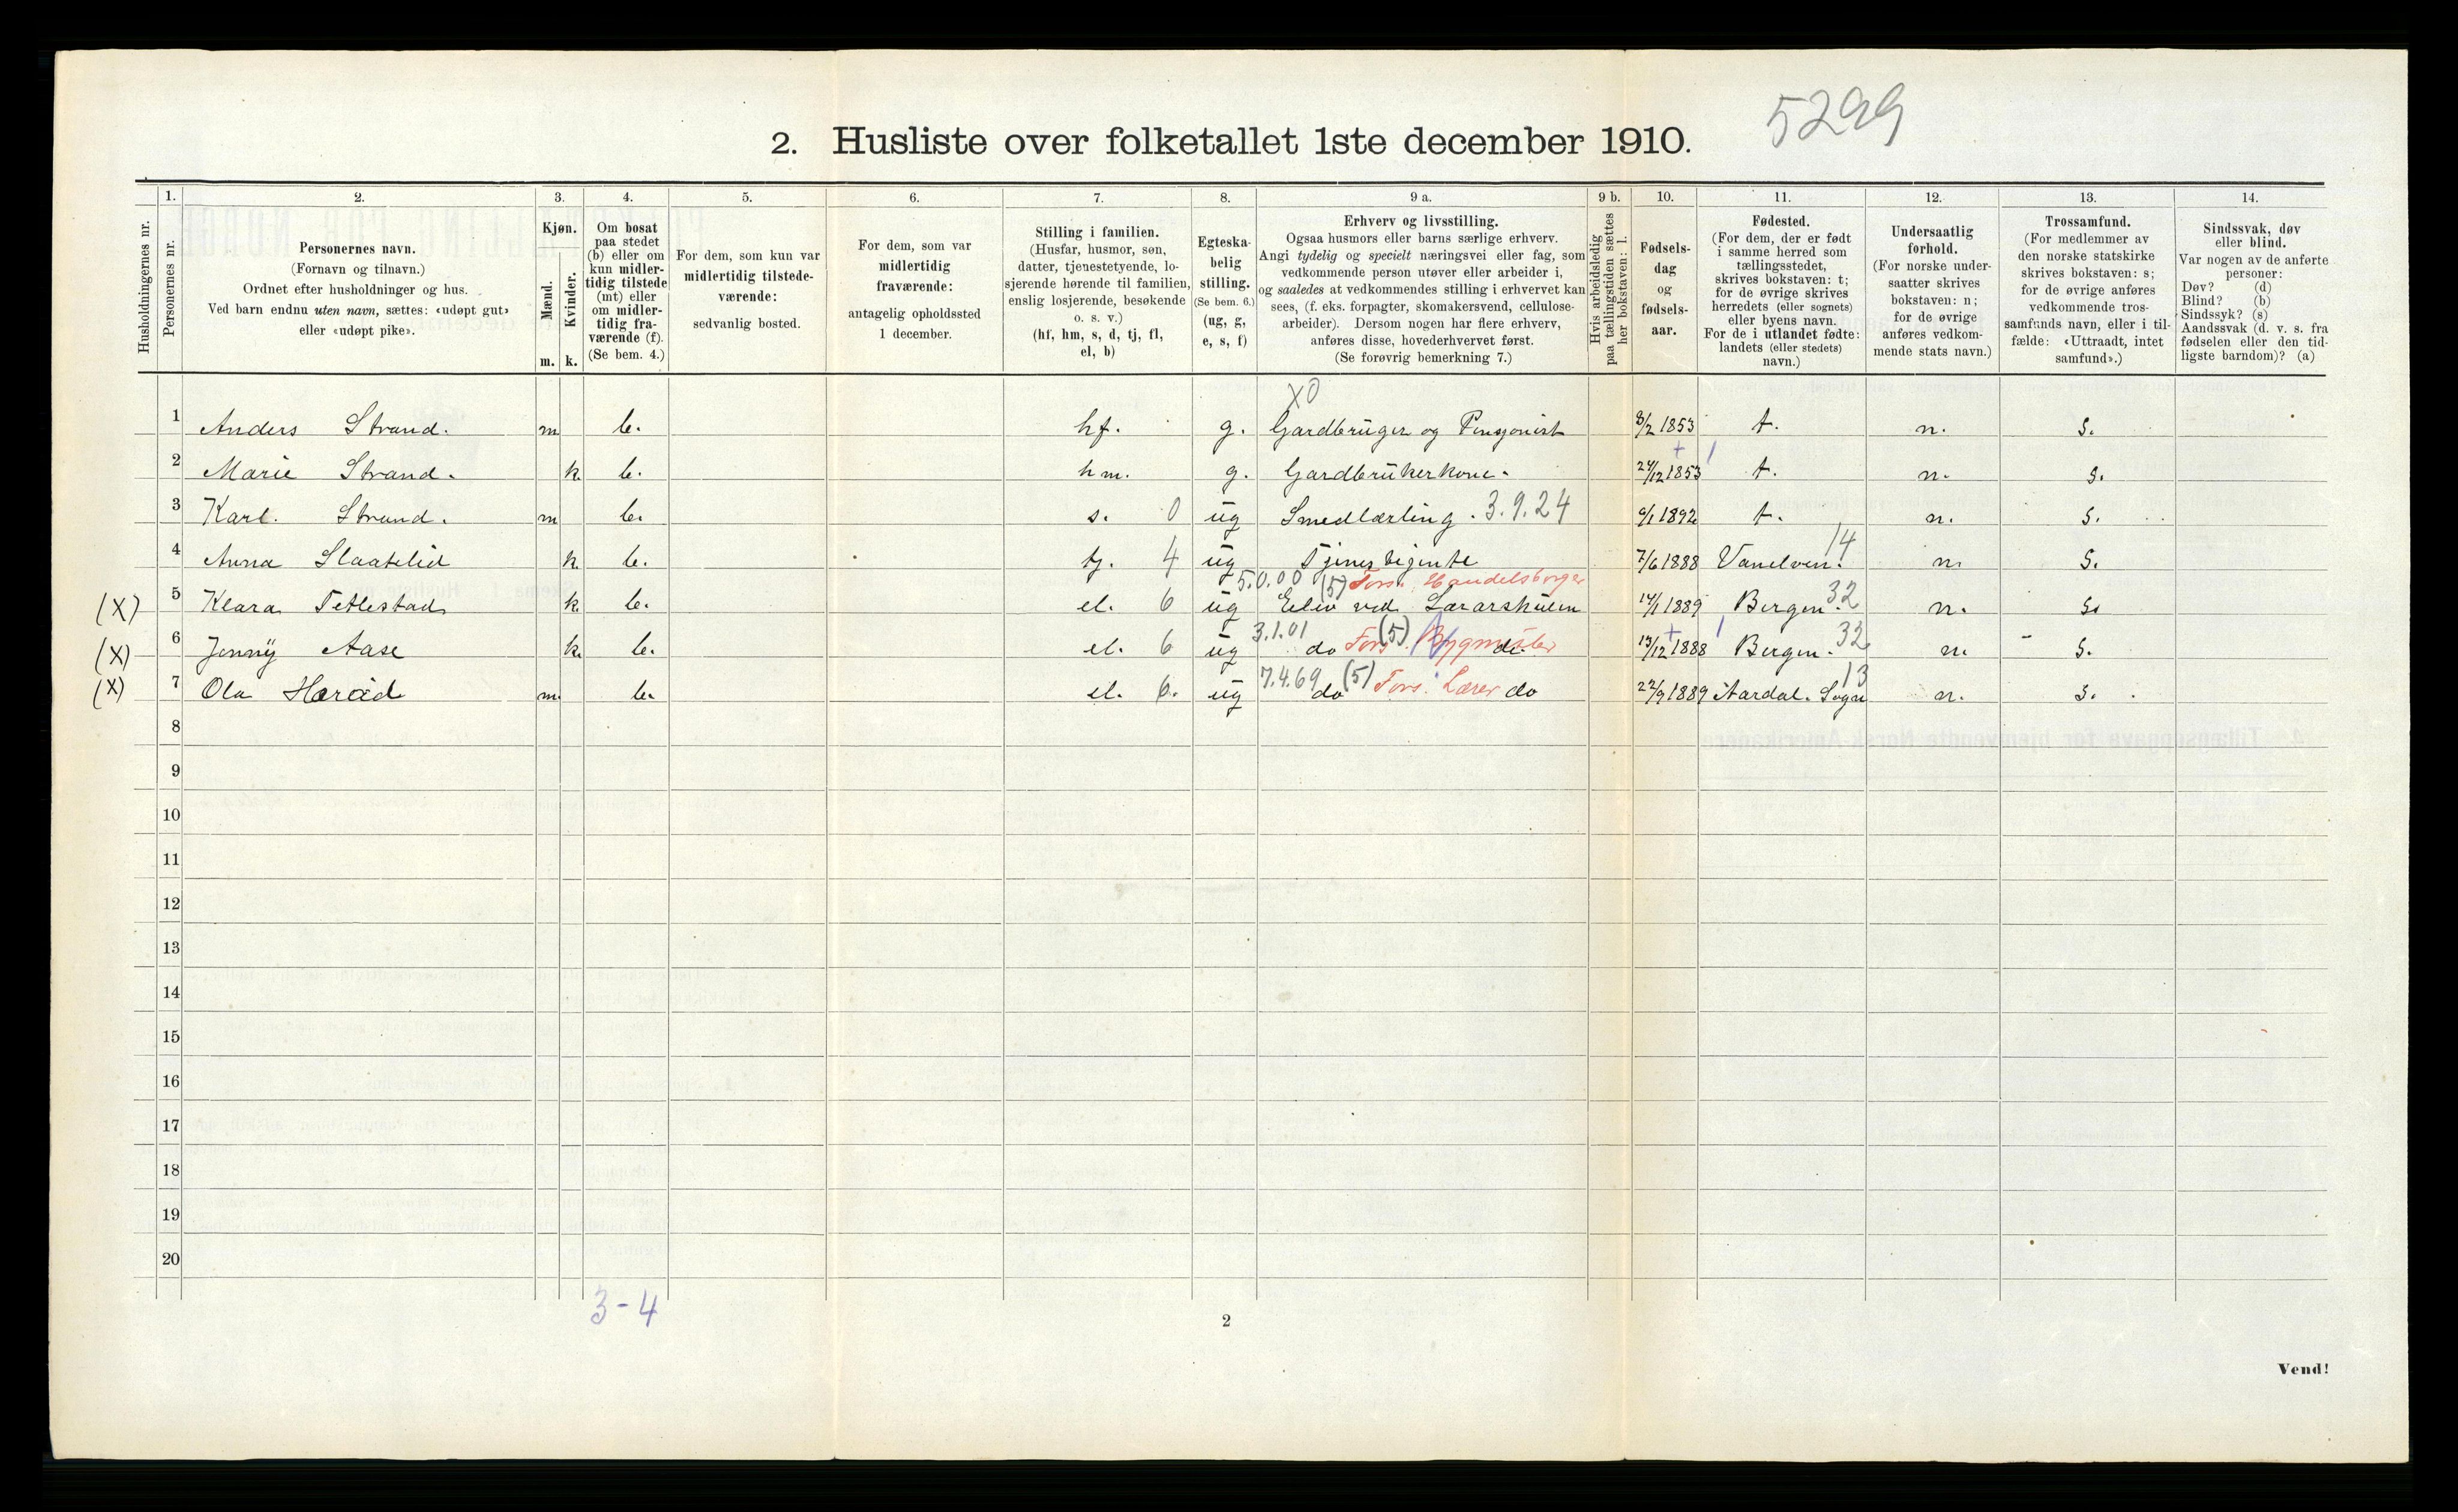 5299
2. Husliste over folketallet 1ste december 1910.
Husholdningernes nr.
1. Personernes nr.
2. Personernes navn.
(Fornavn og tilnavn.)
Ordnet efter husholdninger og hus.
Ved barn endnu uten navn, sættes: «udøpt gut»
eller «udøpt pike».
3. Kjøn.
Mænd. m.
Kvinder. k.
4. Om bosat
paa stedet
(b) eller om
kun midler-
tidig tilstede
(mt) eller
om midler-
tidig fra-
værende (f).
(Se bem. 4.)
5. For dem, som kun var
midlertidig tilstede-
værende:
sedvanlig bosted.
6. For dem, som var
midlertidig
fraværende:
antagelig opholdssted
1 december.
7. Stilling i familien.
(Husfar, husmor, søn,
datter, tjenestetyende, lo-
sjerende hørende til familien,
enslig losjerende, besøkende
o. s. v.)
(hf, hm, s, d, tj, fl,
el, b)
8. Egteska-
belig
stilling.
(Se bem. 6.)
(ug, g,
e, s, f)
9 a. Erhverv og livsstilling.
Ogsaa husmors eller barns særlige erhverv.
Angi tydelig og specielt næringsvei eller fag, som
vedkommende person utøver eller arbeider i,
og saaledes at vedkommendes stilling i erhvervet kan
sees, (f. eks. forpagter, skomakersvend, cellulose-
arbeider). Dersom nogen har flere erhverv,
anføres disse, hovederhvervet først.
(Se forøvrig bemerkning 7.)
9 b. Hvis arbeidsledig
paa tællingstiden sættes
her bokstaven: l.
10. Fødsels-
dag
og
fødsels-
aar.
11. Fødested.
(For dem, der er født
i samme herred som
tællingsstedet,
skrives bokstaven: t;
for de øvrige skrives
herredets (eller sognets)
eller byens navn.
For de i utlandet fødte:
landets (eller stedets)
navn.)
12. Undersaatlig
forhold.
(For norske under-
saatter skrives
bokstaven: n;
for de øvrige
anføres vedkom-
mende stats navn.)
13. Trossamfund.
(For medlemmer av
den norske statskirke
skrives bokstaven: s;
for de øvrige anføres
vedkommende tros-
samfunds navn, eller i til-
fælde: «Uttraadt, intet
samfund».)
14. Sindssvak, døv
eller blind.
Var nogen av de anførte
personer:
Døv? (d)
Blind? (b)
Sindssyk? (s)
Aandssvak (d. v. s. fra
fødselen eller den tid-
ligste barndom)? (a)
X0
1 Anders Strand. m b. hf. g. Gardbruger og Pensjonist 8/2 1853 t. n. s.
2 Marie Strand. k. b. hm. g. Gardbrukerkone. 24/12 1853 t. n. s.
3 Karl. Strand. m b. s. 0 ug Smedlærling. 3.9.24 1892 t. n. s.
4 Anna Slaatelid k. b. tj. 4 ug Tjenestejente 7/6 1888 Vanelven. 14 n. s.
5.0.00 (5) Fors. Handelsborger
(X) 5 Klara Tetlestad k. b. el. 6 ug Elev ved Lærarskulen 14/1 1889 Bergen. 32 n. s.
3.1.01 (5) Fors. Bygmester
(X) 6 Jenny Aase k. b. el. 6 ug do do 13/12 1888 Bergen. 32 n. s.
7.4.69 (5) Fors. Lærer
(X) 7 Ola Haræid m. b. el. 6. ug do do 22/9 1889 Aardal. Sogn 13 n. s.
8
9
10
11
12
13
14
15
16
17
18
19
20
3-4
2
Vend!